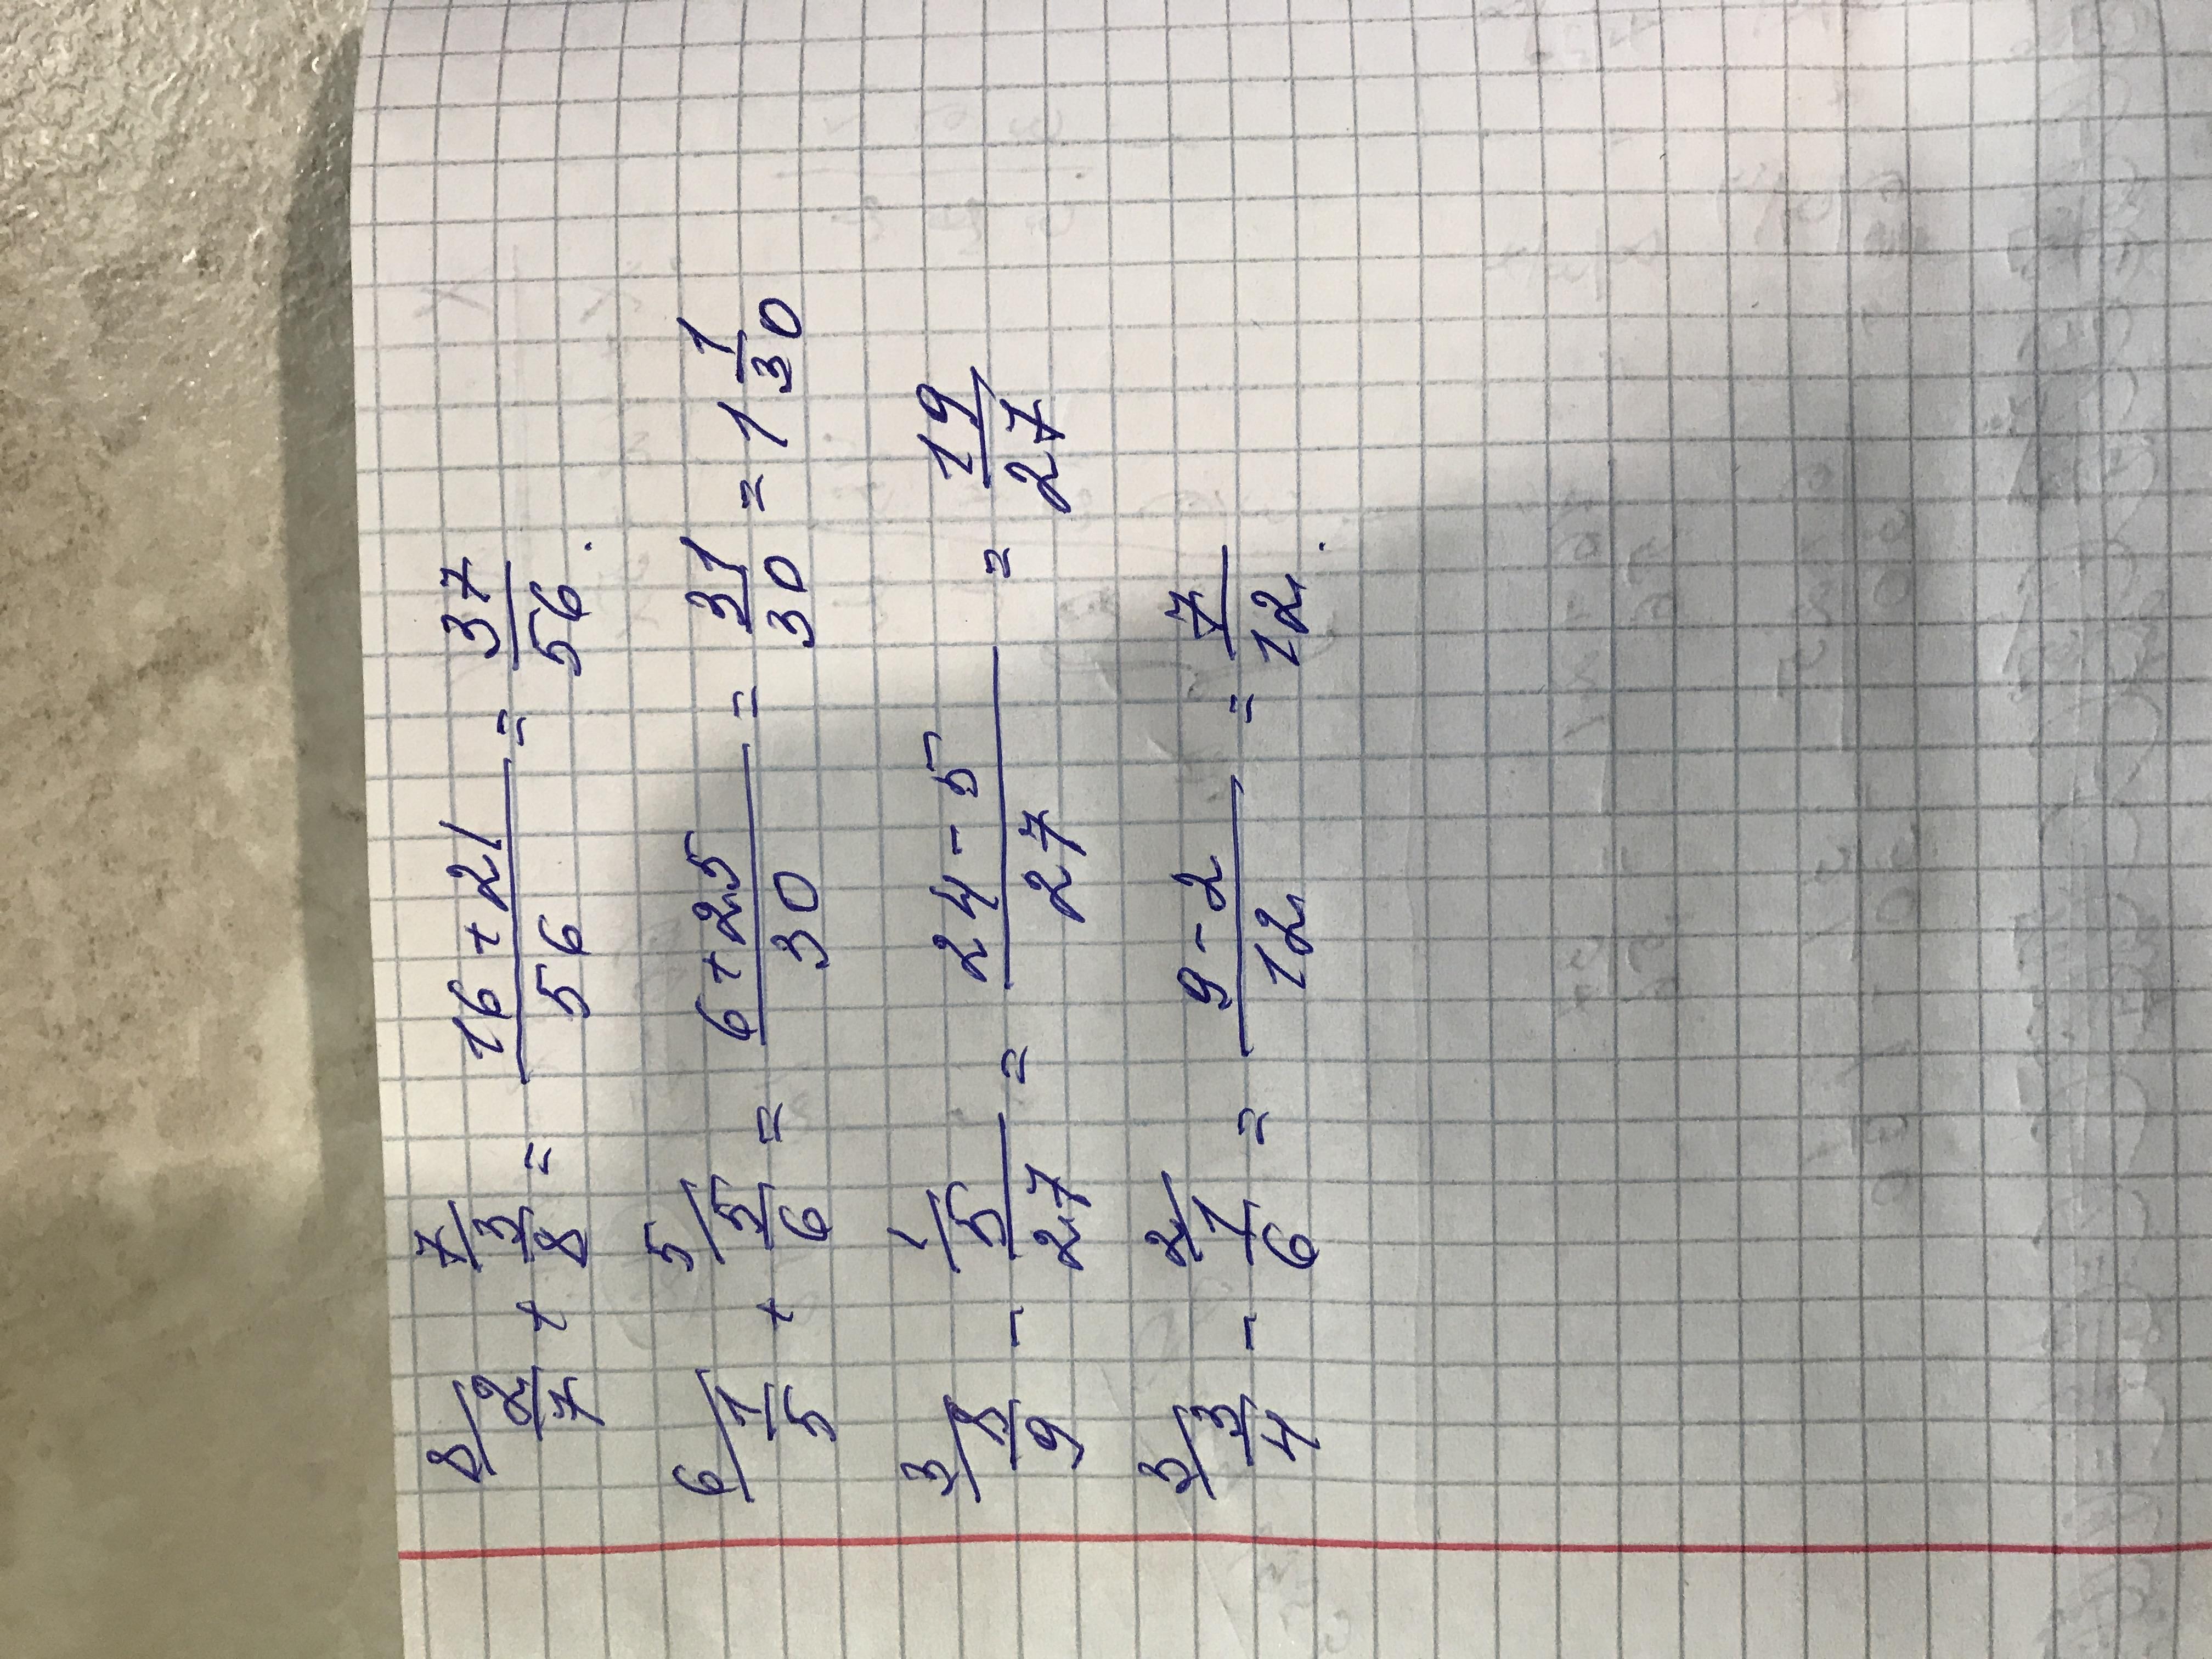 8/ 2/7 + 7/ 3/8 = (16 + 21)/56 = 37/56.
6/ 1/5 + 5/ 5/6 = (6 + 25)/30 = 31/30 = 1 1/30
3/ 8/9 - 1/ 5/27 = (24 - 5)/27 = 19/27
3/ 3/4 - 2/ 1/6 = (9 - 2)/12 = 7/12.